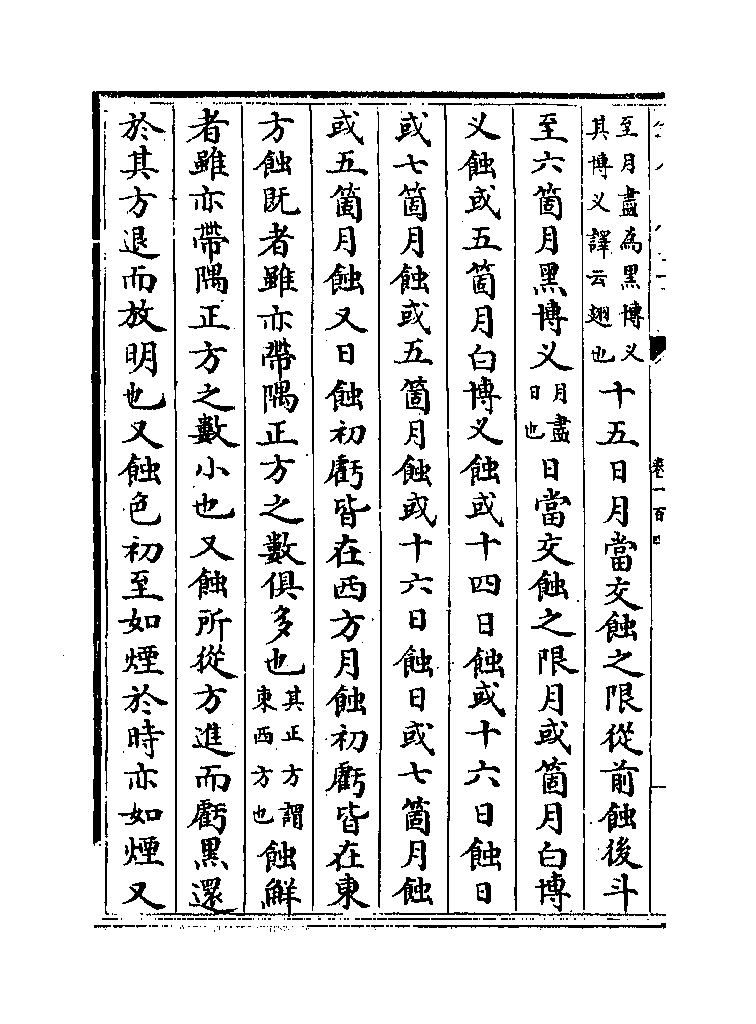 至月盡為黑博义
其博义譯云翅也
十五日月當交蝕之限從前蝕後斗
至六箇月黑博义月盡日也日當交蝕之限月或箇月白博
义蝕或五箇月白博义蝕或十四日蝕或十六日蝕日
或七箇月蝕或五箇月蝕或十六日蝕日或七箇月蝕
或五箇月蝕又日蝕初虧皆在西方月蝕初虧皆在東
方蝕既者雖亦帶隅正方之數俱多也其正方謂東西方也蝕鮮
者雖亦帶隅正方之數小也又蝕所從方進而虧黑還
於其方退而放明也又蝕色初至如煙於時亦如煙又
卷一百四